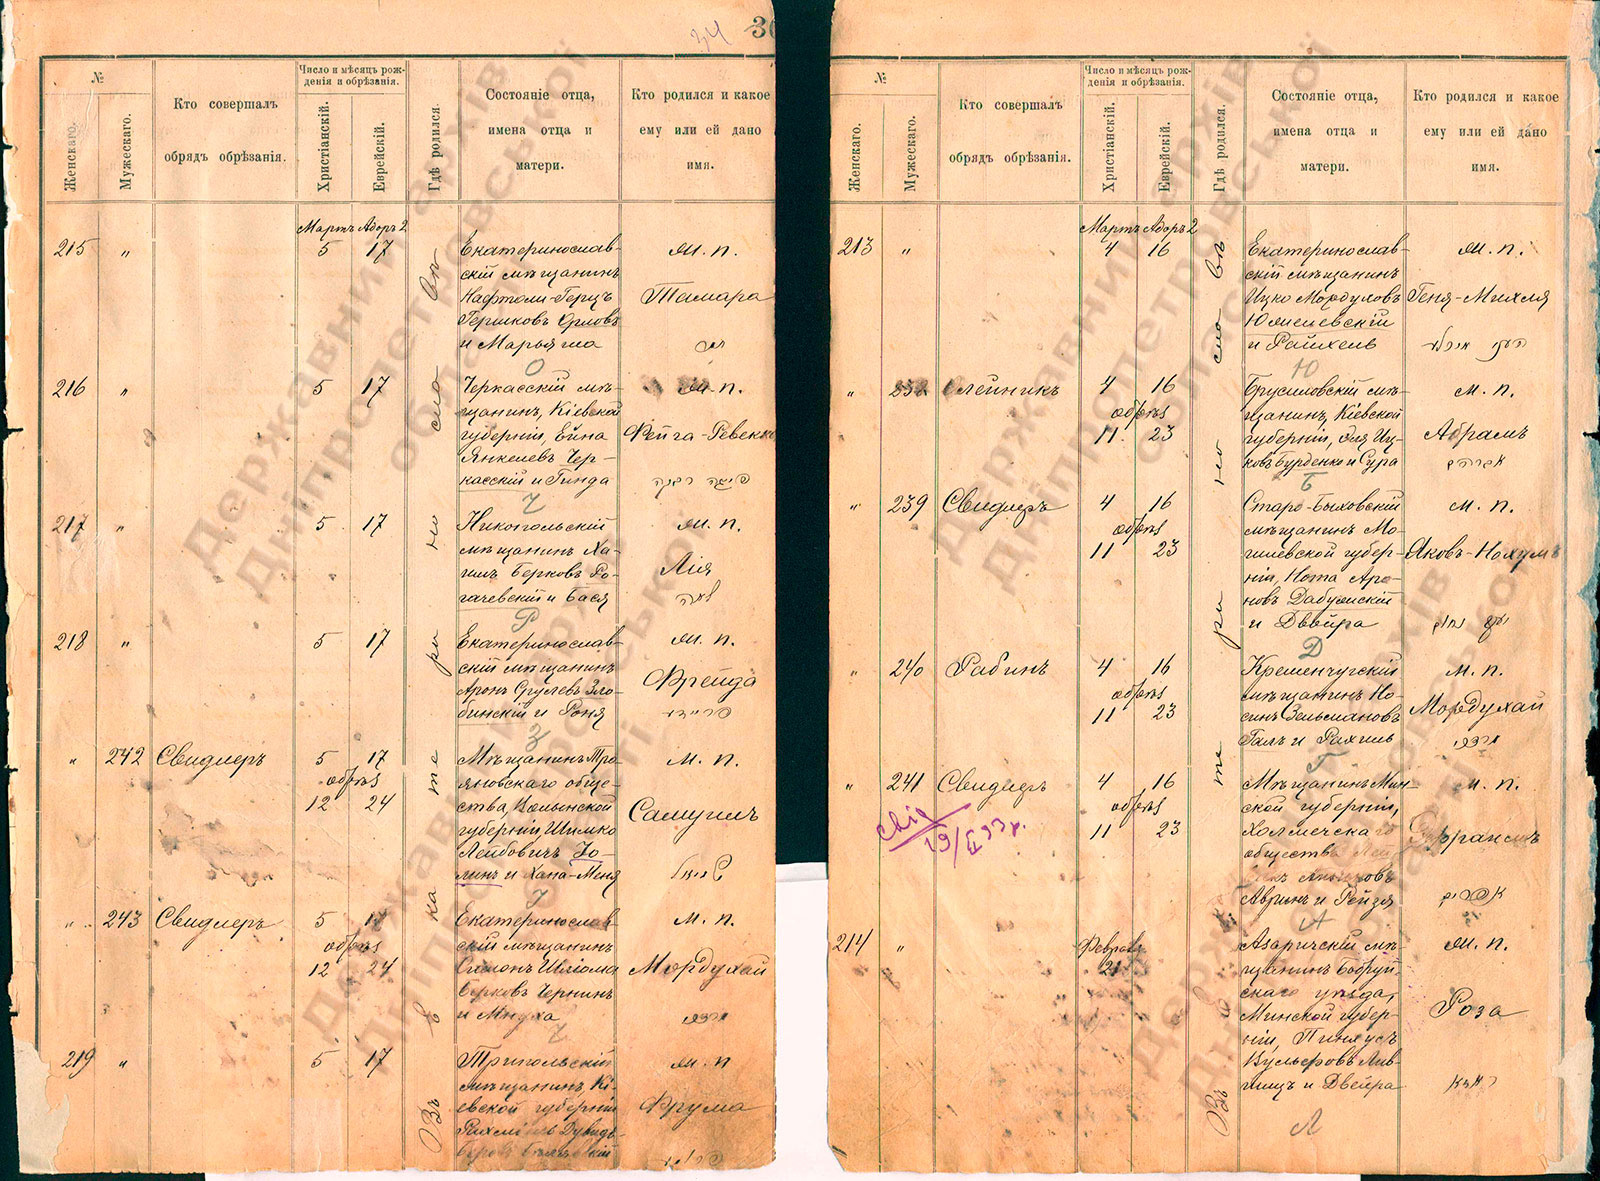 34
№
Женскаго.
Мужескаго.
Кто совершалъ
обрядъ обрѣзанія.
Число и мѣсяцъ рож-
денія и обрѣзанія.
Христіанскій.
Еврейскій.
Гдѣ родился.
Состояніе отца,
имена отца и
матери.
Кто родился и какое
ему или ей дано
имя.
Въ Екатеринославѣ
Мартъ Адоръ 2
215 " 5 17
Екатеринослав-
скій мѣщанинъ
Нафтоли-Герцъ
Гершковъ Орловъ
и Марьяша
О
м. п.
Тамара
תמר
216 " 5 17
Черкасскій мѣ-
щанинъ, Кіевской
губерніи,
Янкелевъ Чер-
касскій и Гинда
Ч
м. п.
Фейга-Ревекка
פייגה רבקה
217 " 5 17
Никопольскій
мѣщанинъ Ха-
имъ Берковъ Ро-
гачевскій и Бася
Р
м. п.
Лія
לאה
218 " 5 17
Екатеринослав-
скій мѣщанинъ
Аронъ Срулевъ Зло-
бинскій и Роня
З
м. п.
Фрейда
פריידא
" 242 Свидлеръ 5 17
обрѣз
12 24
Мѣщанинъ Тро-
яновскаго обще-
ства, Волынской
губерніи Шимко
Лейбовичъ Іо-
линъ и Хана-Меня
м. п.
Самуилъ
שמואל
" 243 Свидлеръ 5 17
обрѣз
12 24
Екатеринослав
скій мѣщанинъ
Симонъ Шліома
Берковъ Чернинъ
и Мнуха
Ч
м. п.
Мордухай
מרדכי
219 " 5 17
Трипольскій
мѣщанинъ, Кі-
евской губерніи
м. п.
Фрума
№
Женскаго.
Мужескаго.
Кто совершалъ
обрядъ обрѣзанія.
Число и мѣсяцъ рож-
денія и обрѣзанія.
Христіанскій.
Еврейскій.
Гдѣ родился.
Состояніе отца,
имена отца и
матери.
Кто родился и какое
ему или ей дано
имя.
Въ Екатеринославѣ
Мартъ Адоръ 2
213 " 4 16
Екатеринослав-
скій мѣщанинъ
Ицко Мордуховъ
Юмшевскій
и Райхель
Ю
м. п.
Геня-Михля
" 4 16
обрѣз
11 23
Брусиловскій мѣ-
щанинъ, Кіевской
губерніи, Эля Иц-
ковъ Бурденко и Сура
Б
м. п.
Абрамъ
אברהם
" 239 Свидлеръ 4 16
обрѣз
11 23
Старо-Быховскій
мѣщанинъ Мо-
гилевской губер-
ніи, Нота Аро-
новъ Дабужскій
и Двейра
Д
м. п.
Яковъ-Нохумъ
יעקב נחום
" 240 Рабинъ 4 16
обрѣз
11 23
Кременчугскій
мѣщанинъ Но-
синъ Зельмановъ
Галъ и Рахиль
Г
м. п.
Мордухай
מרדכי
" 241 Свидлеръ 4 16
обрѣз
11 23
Мѣщанинъ Мин
ской губерніи,
Холмечскаго
общества
Авринъ и Рейзя
А
м. п.
Эфраимъ
אפרים
214 " Феврал
21
Азаричскій мѣ-
щанинъ Бобруй
скаго уѣзда,
Минской губер-
ніи, Пинхусъ
Вульфовъ Лив-
шицъ и Двейра
Л
м. п.
Роза
ראזא
Державний архів
Дніпропетровської
області